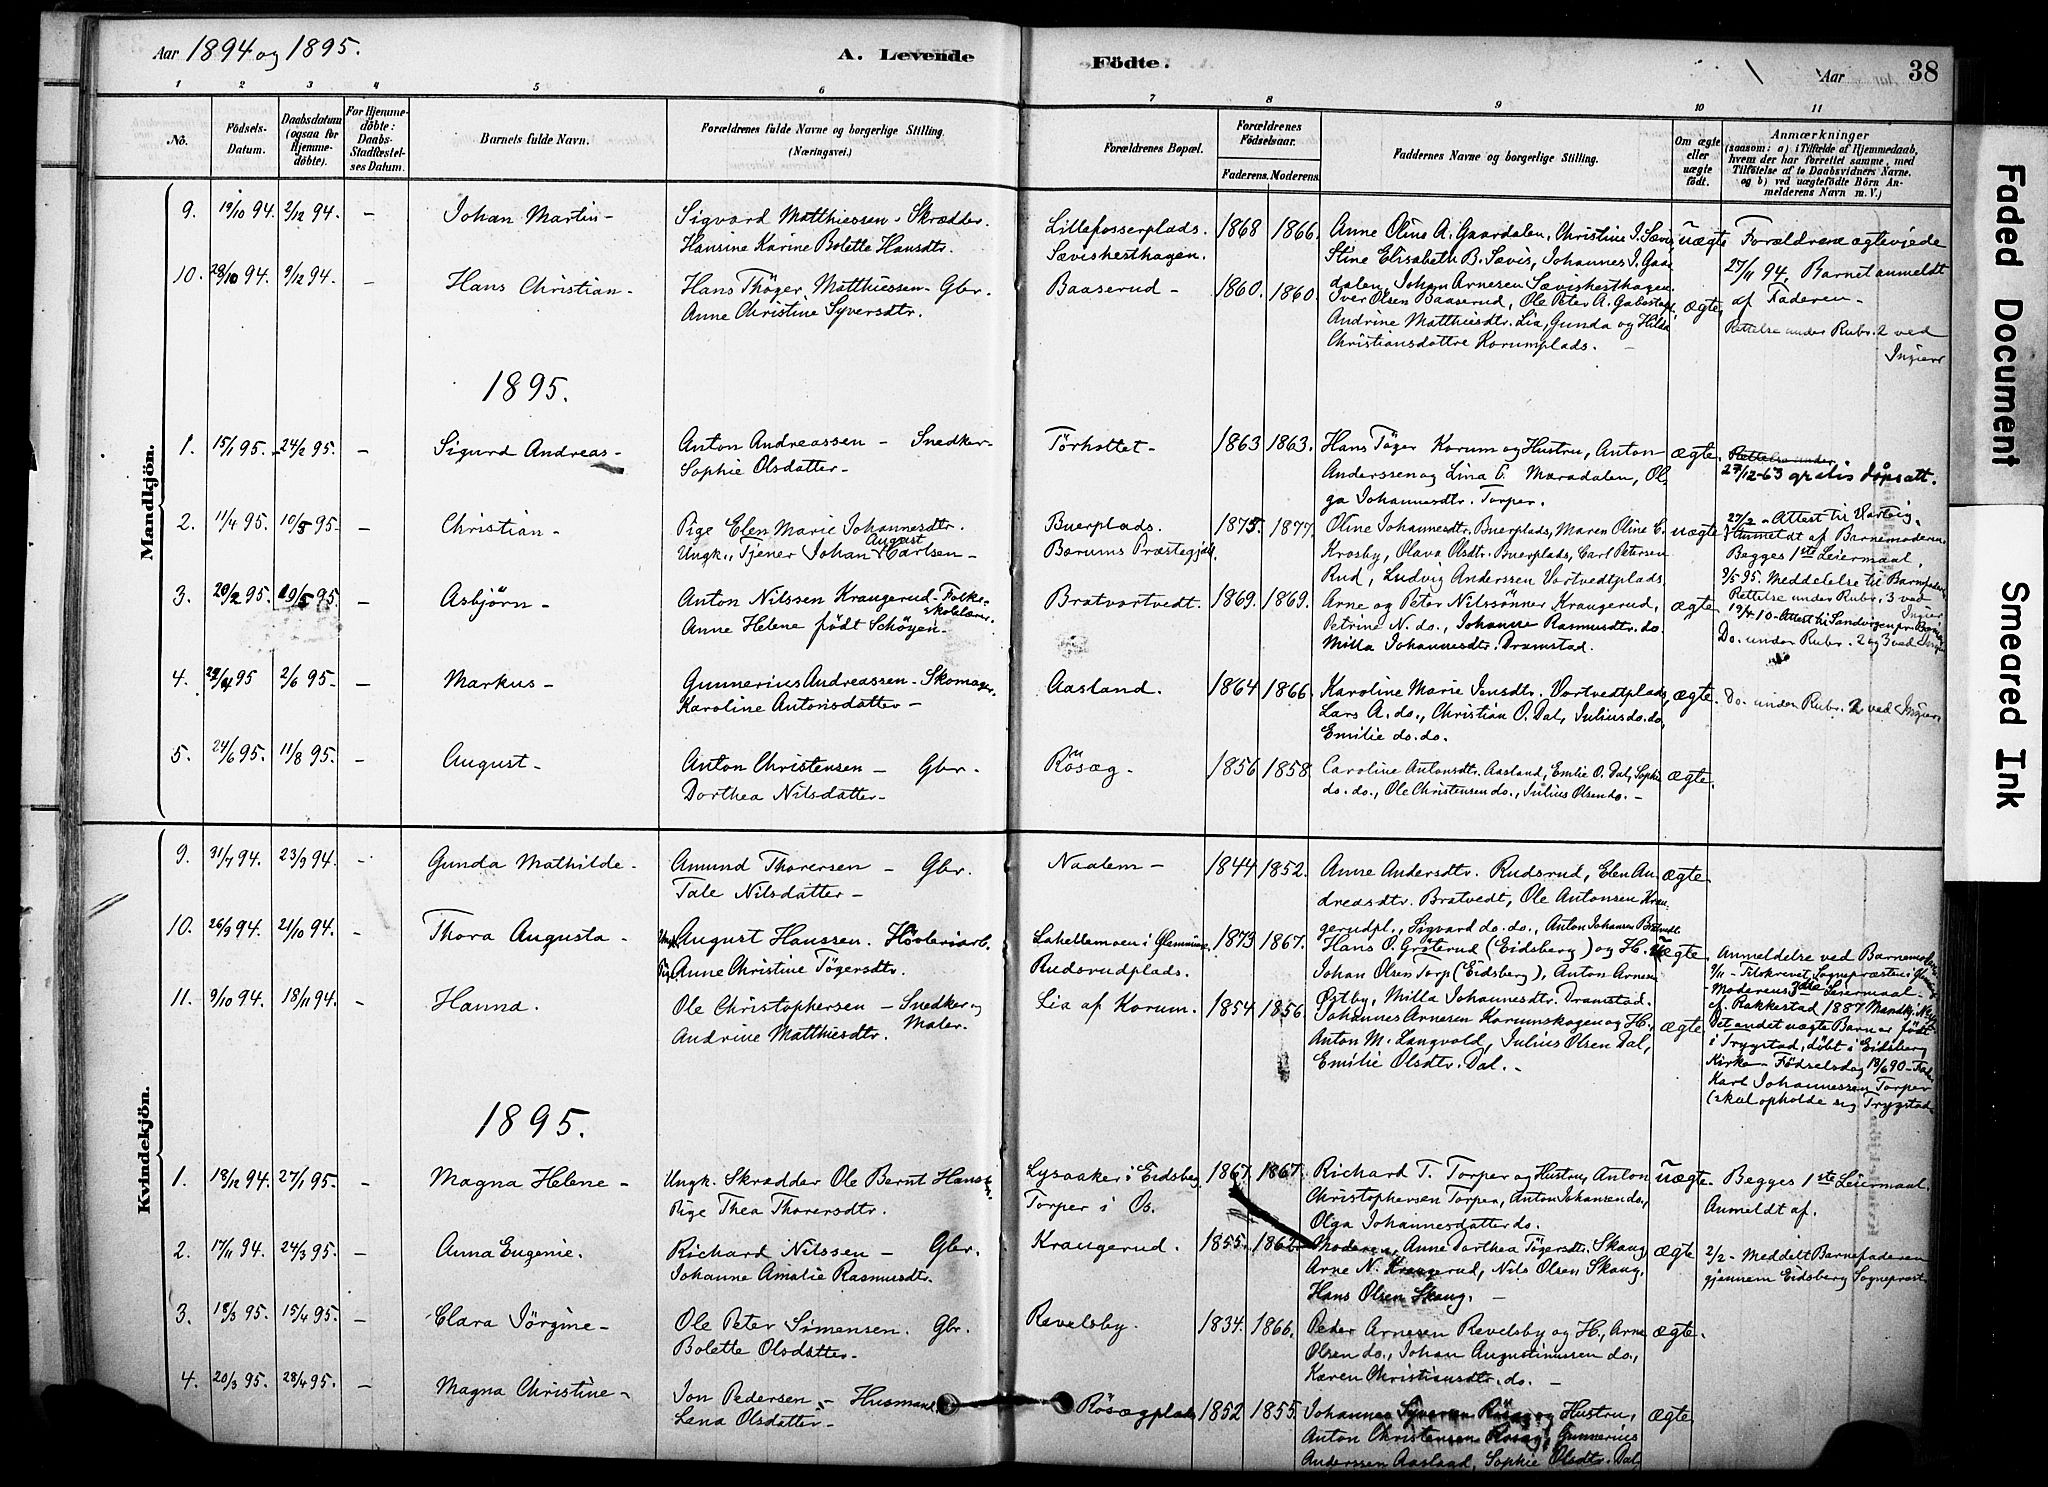 Aar 1894 og 1895.
A. Levende Födte.
Aar 38
1 2 3 4 5 6 7 8 9 10 11
No.
Födsels-Datum.
Daabsdatum (ogsaa for Hjemmedöbte).
For Hjemmedöbte: Daabs-Stadfæstelses Datum.
Barnets fulde Navn.
Forældrenes fulde Navne og borgerlige Stilling. (Næringsvei.)
Forældrenes Bopæl.
Forældrenes Födselsaar. Faderens. Moderens.
Faddernes Navne og borgerlige Stilling.
Om ægte eller uægte födt.
Anmærkninger (saasom: a) i Tilfælde af Hjemmedaab, hvem der har forrettet samme, med Tilföielse af to Daabsvidners Navne. og b) ved uægtefödte Börn Anmelderens Navn m. V.)
Mandkjön.
9. 19/10 94. 2/12 94. - Johan Martin - Sigvard Matthiessen - Skrædder. Lillefosserplads. 1868 1866. Anne Olius A. Gaardalen, Christine J. Sævis, uægte Forældrene ægteviede
Hansine Karine Bolette Hansdtr. Sævishesthagen. Stine Elisabeth B. Sævis, Johannes J. Gaa 27/11 94. Barnet anmeldt
10. 28/10 94. 9/12 94. - Hans Christian - Hans Thöger Matthiessen - Gbr. Baaserud - 1860. 1860. dalen, Johan Arnesen Sævishesthagen. af Faderen -
Anne Christine Syversdtr. Iver Olsen Baaserud, Ole Peter A. ægte,
Andrine Matthiesdtr. Lia, Gunda og Hilda Rettelse under Rubr. 2 ved
Christiansdöttre Korumplads. - Ingier
1895.
1. 15/1 95. 24/2 95. - Sigurd Andreas - Anton Andreassen - Snedker - Törholtet - 1863 1863. Hans Töger Korum og Hustru, Anton ægte. Rettelse under
Sophie Olsdatter - Anderssen og Lina C. Maradalen, Ol 27/12-63 gratis dåpsatt.
ga Johannesdtr. Torper.
2. 11/4 95. 10/5 95 - Christian - Pige Elen Marie Johannesdtr. Buerplads. 1875 1877. Oline Johannesdtr. Buerplads, Maren Oline E. uægte 27/2 - Attest til
Ungk., Tjener Johan August Karlsen - Borums Præstegjæld Krosby, Olava Olsdtr. Buerplads, Carl Petersen Anmeldt af Barnemoderen.
Rud, Ludvig Anderssen Vortvedtplads. Begges 1ste Leiermaal.
9/5 95. Meddelelse til Barnefaderen
3. 20/2 95. 19/5 95. - Asbjörn - Anton Nilssen Kraugerud - Folkeskolelærer. Bratvortvedt. 1869. 1869. Arne og Peter Nilssönner Kraugerud, ægte. Rettelse under Rubr. 3 ved Ingier
Anne Helene född Schöyen - Petrine N. do., Johanne Rasmusdtr. do. 19/4 10 - Attest til
Milla Johannesdtr. Dramstad. Do. under Rubr. 2 og 3 ved Ingier
4. 22/4 95 2/6 95 - - Markus - Gunnerius Andreassen - Skomager. Aasland. 1864 1866. Karoline Marie Jensdtr. Vortvedtplads, ægte. Do. under Rubr. 2 ved Ingier
Karoline Antonsdatter - Lars A. do., Christian O. Dal, Julius do. do.
Emilie do. do.
5. 24/6 95. 11/8 95. - August - Anton Christensen - Gbr. Rösæg - 1856 1858. Caroline Antonsdtr. Aasland, Emilie O. Dal, Sophie ægte.
Dorthea Nilsdatter - do. do., Ole Christensen do., Julius Olsen do. -
Kvindekjön.
9. 31/7 94. 23/9 94. - Gunda Mathilde - Amund Thorersen - Gbr. Naalem - 1844 1852. Anne Andersdtr. Rudsrud, Elen An ægte
Tale Nilsdatter - dreasdtr. Bratvedt, Ole Antonsen Krau
10. 26/9 94. 21/10 94. - Thora Augusta - Ungk. August Hanssen. Hövleriarb. Lahellemoen i Glemminge 1873 1867. gerudpl., Sigvard do. do., Anton Johansen
Pige Anne Christine Tögersdtr. Rudsrudplads. Hans O. Gröterud (Eidsberg) og H. uægte Anmeldelse ved Barnemoderen
Johan Olsen Torp (Eidsberg), Anton Arnesen 9/11 - Tilskrevet Sognepræsten i
11. 9/10 94. 18/11 94. - Hanna. Ole Christophersen - Snedker og Maler. Lia af Korum. 1854 1856. Östby, Milla Johannesdtr. Dramstad. Moderens 3die Leiermaal.
Andrine Matthiesdtr. Johannes Arnesen Korumskogen og H., ægte cf. Rakkestad 1887 Mandkj.
Anton M. Langvold, Julius Olsen Dal, Det andet uægte Barn er födt
Emilie Olsdtr. Dal. - i Trygstad, döbt i Eidsberg
Kirke - Födselsdag 13/6 90 - Fader
Karl Johannessen Torper
(skal opholde sig Trygstad
1895.
1. 18/12 94. 27/1 95. - Magna Helene - Ungk. Skrædder Ole Bernt Hanssen. Lysaaker i Eidsberg. 1867. 1867. Richard T. Torper og Hustru, Anton uægte. Begges 1ste Leiermaal.
Pige Thea Thorersdtr. Torper i Os. Christophersen Torper, Anton Johansen do., Anmeldt af.
Olga Johannesdatter do.
2. 17/11 94. 24/3 95. - Anna Eugenie. Richard Nilssen - Gbr. Kraugerud. 1855. 1862. Moderen, Anne Dorthea Tögersdtr. Skaug ægte 2/2 - Meddelt Barnefaderen
Johanne Amalie Rasmusdtr. Arne N. Kraugerud, Nils Olsen Skaug, gjennem Eidsberg Sognepræst
Hans Olsen Skaug. -
3. 18/3 95. 15/4 95. - Clara Jörgine - Ole Peter Simensen. Gbr. Revelsby. 1834. 1866. Peder Arnesen Revelsby og H., Arne ægte.
Bolette Olsdatter - Olsen do., Johan Augustinussen do.,
Karen Christiansdtr. do. -
4. 20/3 95. 28/4 95. - Magna Christine - Jon Pedersen - Husmand Rösægplads 1852 1855. Johannes Syversen Rösæg og Hustru, ægte
Lena Olsdatter - Anton Christensen Rosæg, Gunnerius
Anderssen Aaslaad, Sophie Olsdtr. Dal,
Faded Document
Smeared Ink